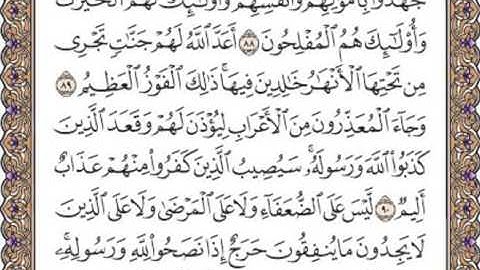 جَٰهَدُوا۟ بِأَمْوَٰلِهِمْ وَأَنفُسِهِمْ وَأُو۟لَٰٓئِكَ لَهُمُ ٱلْخَيْرَٰتُ
وَأُو۟لَٰٓئِكَ هُمُ ٱلْمُفْلِحُونَ ٨٨ أَعَدَّ ٱللَّهُ لَهُمْ جَنَّٰتٍ تَجْرِى
مِن تَحْتِهَا ٱلْأَنْهَٰرُ خَٰلِدِينَ فِيهَا ۚ ذَٰلِكَ ٱلْفَوْزُ ٱلْعَظِيمُ ٨٩
وَجَآءَ ٱلْمُعَذِّرُونَ مِنَ ٱلْأَعْرَابِ لِيُؤْذَنَ لَهُمْ وَقَعَدَ ٱلَّذِينَ
كَذَبُوا۟ ٱللَّهَ وَرَسُولَهُۥ ۚ سَيُصِيبُ ٱلَّذِينَ كَفَرُوا۟ مِنْهُمْ عَذَابٌ
أَلِيمٌ ٩٠ لَّيْسَ عَلَى ٱلضُّعَفَآءِ وَلَا عَلَى ٱلْمَرْضَىٰ وَلَا عَلَى ٱلَّذِينَ
لَا يَجِدُونَ مَا يُنفِقُونَ حَرَجٌ إِذَا نَصَحُوا۟ لِلَّهِ وَرَسُولِهِۦ ۚ